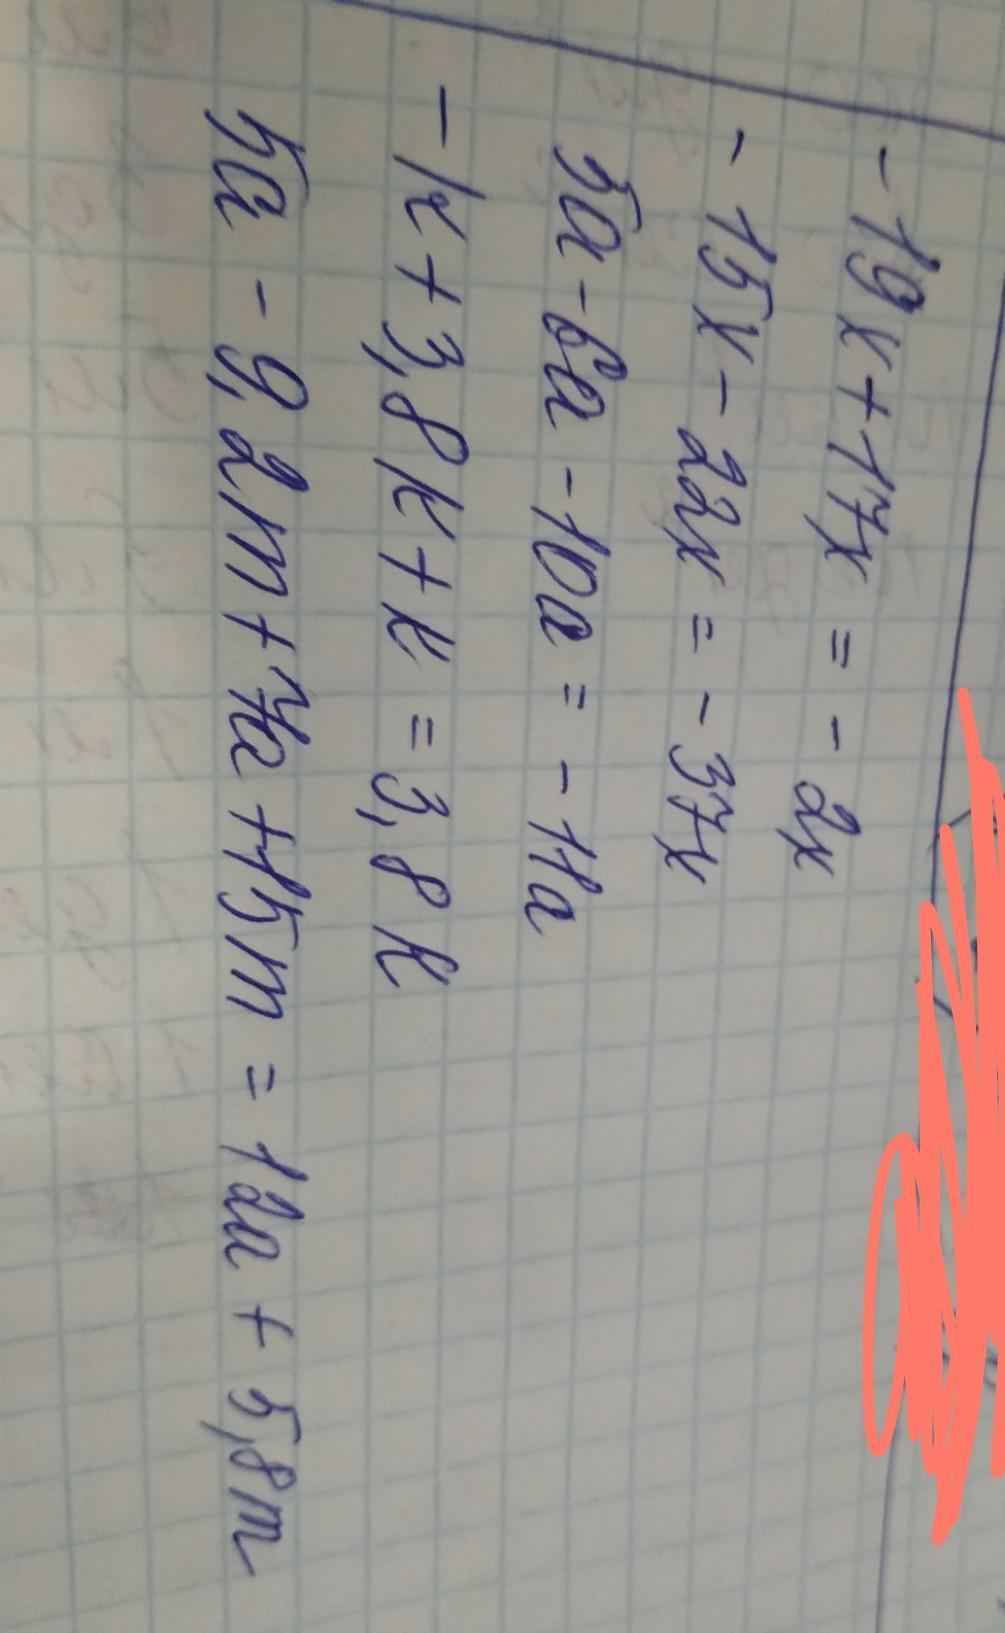 - 19x + 17x = - 2x
- 15x - 22x = - 37x
5a - 6a - 10a = - 11a
- k + 3,8k + k = 3,8k
5a - 9,2m + 7a + 15m = 12a + 5,8m